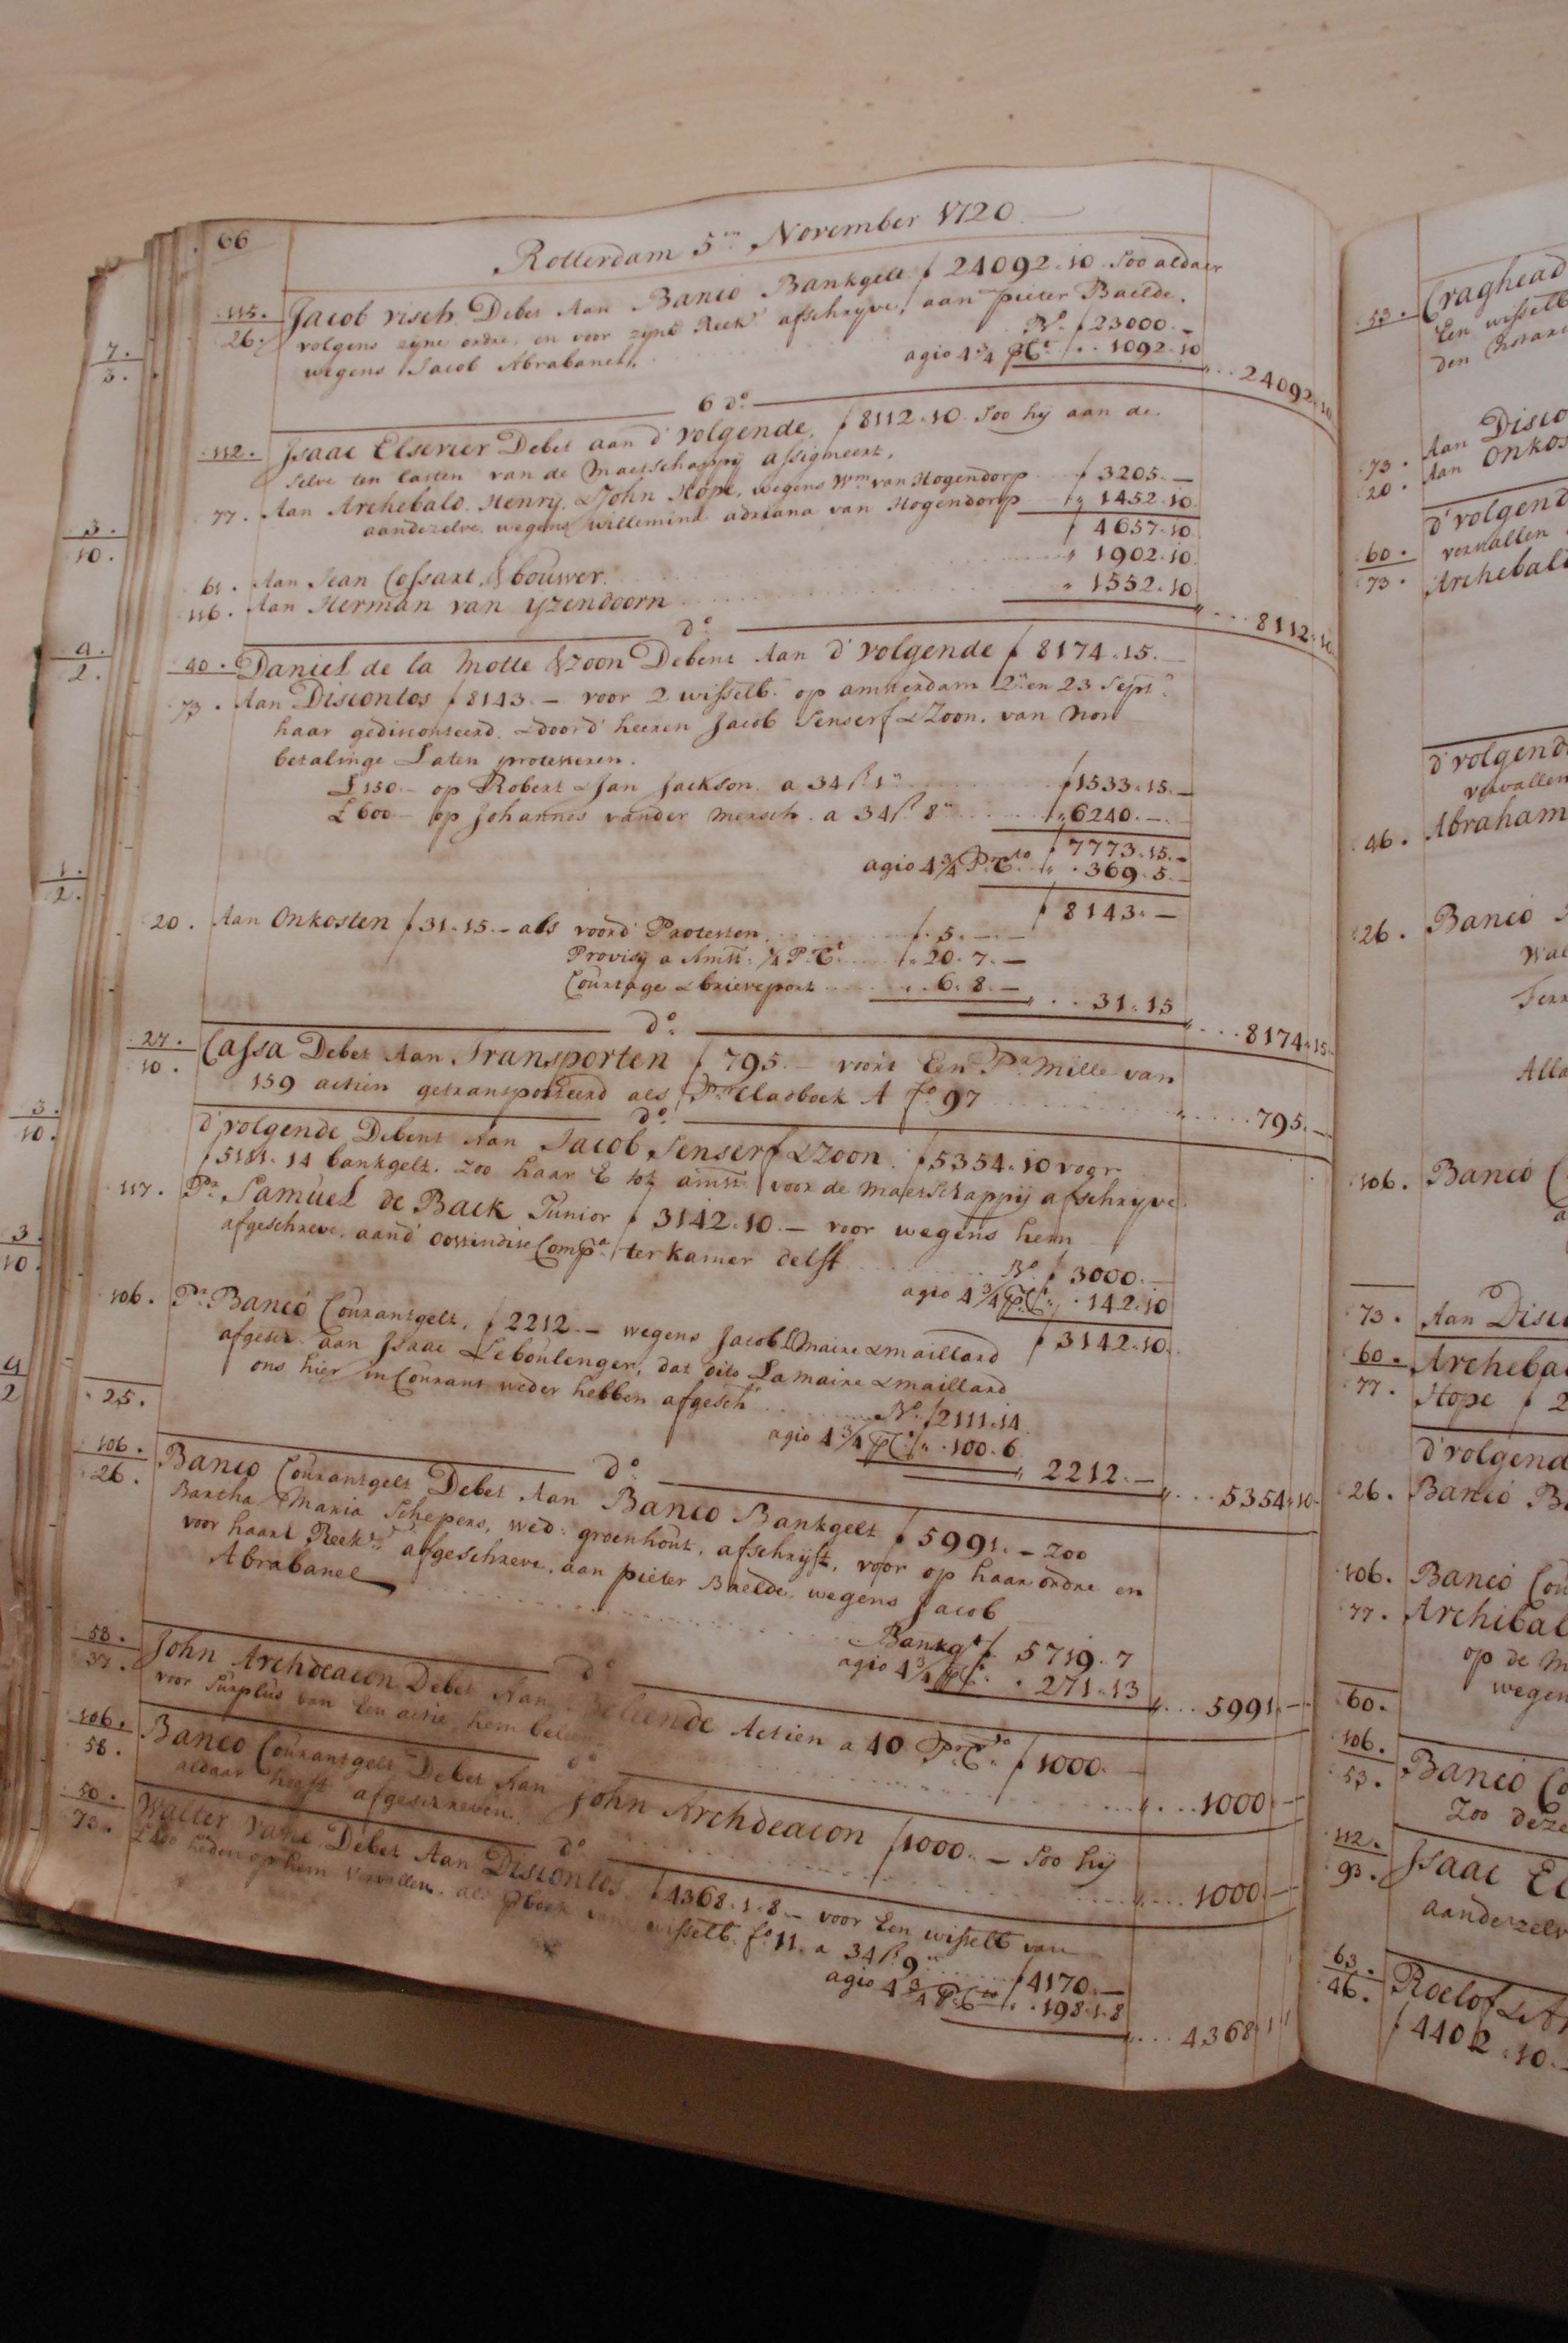 66
Rotterdam 5en November 1720
115. Jacob Visch Debet Aan Banco Bankgelt f 24092.10 Soo aldaer
26. volgens zijne ordre, en voor zijne Reek: afschryve, aan Pieter Baelde,
wegens Jacob Abrabanel, Bo. f 23000.-
agio 4 3/4 PCt f .. 1092.10
24092.10
6 do.
112. Isaac Elsevier Debet aan d'volgende, f 8112.10. Soo hij aan de
selve ten lasten van de Maetschappij assigneert,
77. Aan Archebald, Henry, & John Hope, wegens Wm. van Hogendorp f 3205.-
aandezelve, wegens willemina adriana van Hogendorp 1452.10
f 4657.10
61. Aan Jean Cossart, & bouwer 1902.10
116. Aan Herman van Yzendoorn 1552.10
8112.10
do.
40. Daniel de la Motte & Zoon Debent Aan d'volgende f 8174.15.-
73. Aan Discontos f 8143.- voor 2 wisselb. op amsterdam 2en 23 Sept.
haar gedisconteerd, & door d'heeren Jacob Senserf & Zoon, van non
betalinge Laten protesteren.
£ 150.- op Robert & Jan Jackson a 34ß 1 f 1533.15.-
£ 600.- op Johannes vander Mersch a 34ß 8 6240.-
f 7773.15.-
agio 4 3/4 P.Cto .369.5.-
f 8143.-
20. Aan Onkosten f 31.15.- als voord' Protesten f. 5.-.-
Provisij a Amst: 1/4 P.Ct 20.7.-
Courtage & brieveport 6.8.-
31.15
8174.15.-
do.
27. Cassa Debet Aan Transporten f 795.- voort Een Pr. Mille van
10. 159 actien getransporteerd als Pr. Cladboek A fo. 97
795.-
do.
d'volgende Debent Aan Jacob Senserf & Zoon. f 5354.10 voor
f 5111.14 bankgelt. zoo haar E tot amst: voor de Maetschappij afschryve.
117. Pr. Samuel de Back Junior f 3142.10.- voor wegens hem
afgeschreve, aand' Oostindise Compa. ter kamer delft Bo. f 3000.-
agio 4 3/4 P.C. .142.10
f 3142.10.
106. Pr. Banco Courantgelt, f 2212.- wegens Jacob LMaire & maillard
afgeschr. aan Isaac Leboulenger, dat dito Lamaire & maillard
ons hier in Courant weder hebben afgesch. Bo. f 2111.14
25. agio 4 3/4 P.C. .100.6
2212.-
5354.10.
do.
106. Banco Courantgelt Debet Aan Banco Bankgelt f 5991.- zoo
26. Bartha Maria Schepers, wed: groenhout, afschryft, voor op haar ordre en
voor haare Reek: afgeschreve, aan pieter Baelde, wegens Jacob
Abrabanel
Bankgt f 5719.7
agio 4 3/4 P.C. .271.13
5991.-
do.
58. John Archdeacon Debet Aan Beleende Actien a 40 Pr.Cto. f 1000.
37. voor Surplus van Een actie hem
1000.-
do.
106. Banco Courantgelt Debet Aan John Archdeacon f 1000.- Soo hij
58. aldaar heeft afgeschreven.
1000.-
do.
50. Walter Debet Aan Discontos. f 4368.1.8.- voor Een wisselb van
73. heden op hem vervallen, als wisselb. fo. 11. a 34ß 9 f 4170.-
agio 4 3/4 P.Cto .198.1.8
4368.1
7.
3.
3.
10.
4.
2.
1.
2.
3.
10.
3.
10.
4
2
53. Craghead
Een wisselb
den
73. Aan Disco
20. Aan Onkos
d'volgend
60. vervallen
73. Archebal
d'volgend
vervallen
46. Abraham
26. Banco
106. Banco C
73. Aan Disc
60. Archeba
77. Hope f 2
d'volgend
26. Banco B
106. Banco Cou
77. Archibal
op de M
wegen
60.
106. Banco Co
53. Zoo deze
112. Isaac El
93. aandezelv
63. Roelof & A
46. f 4402.10.-